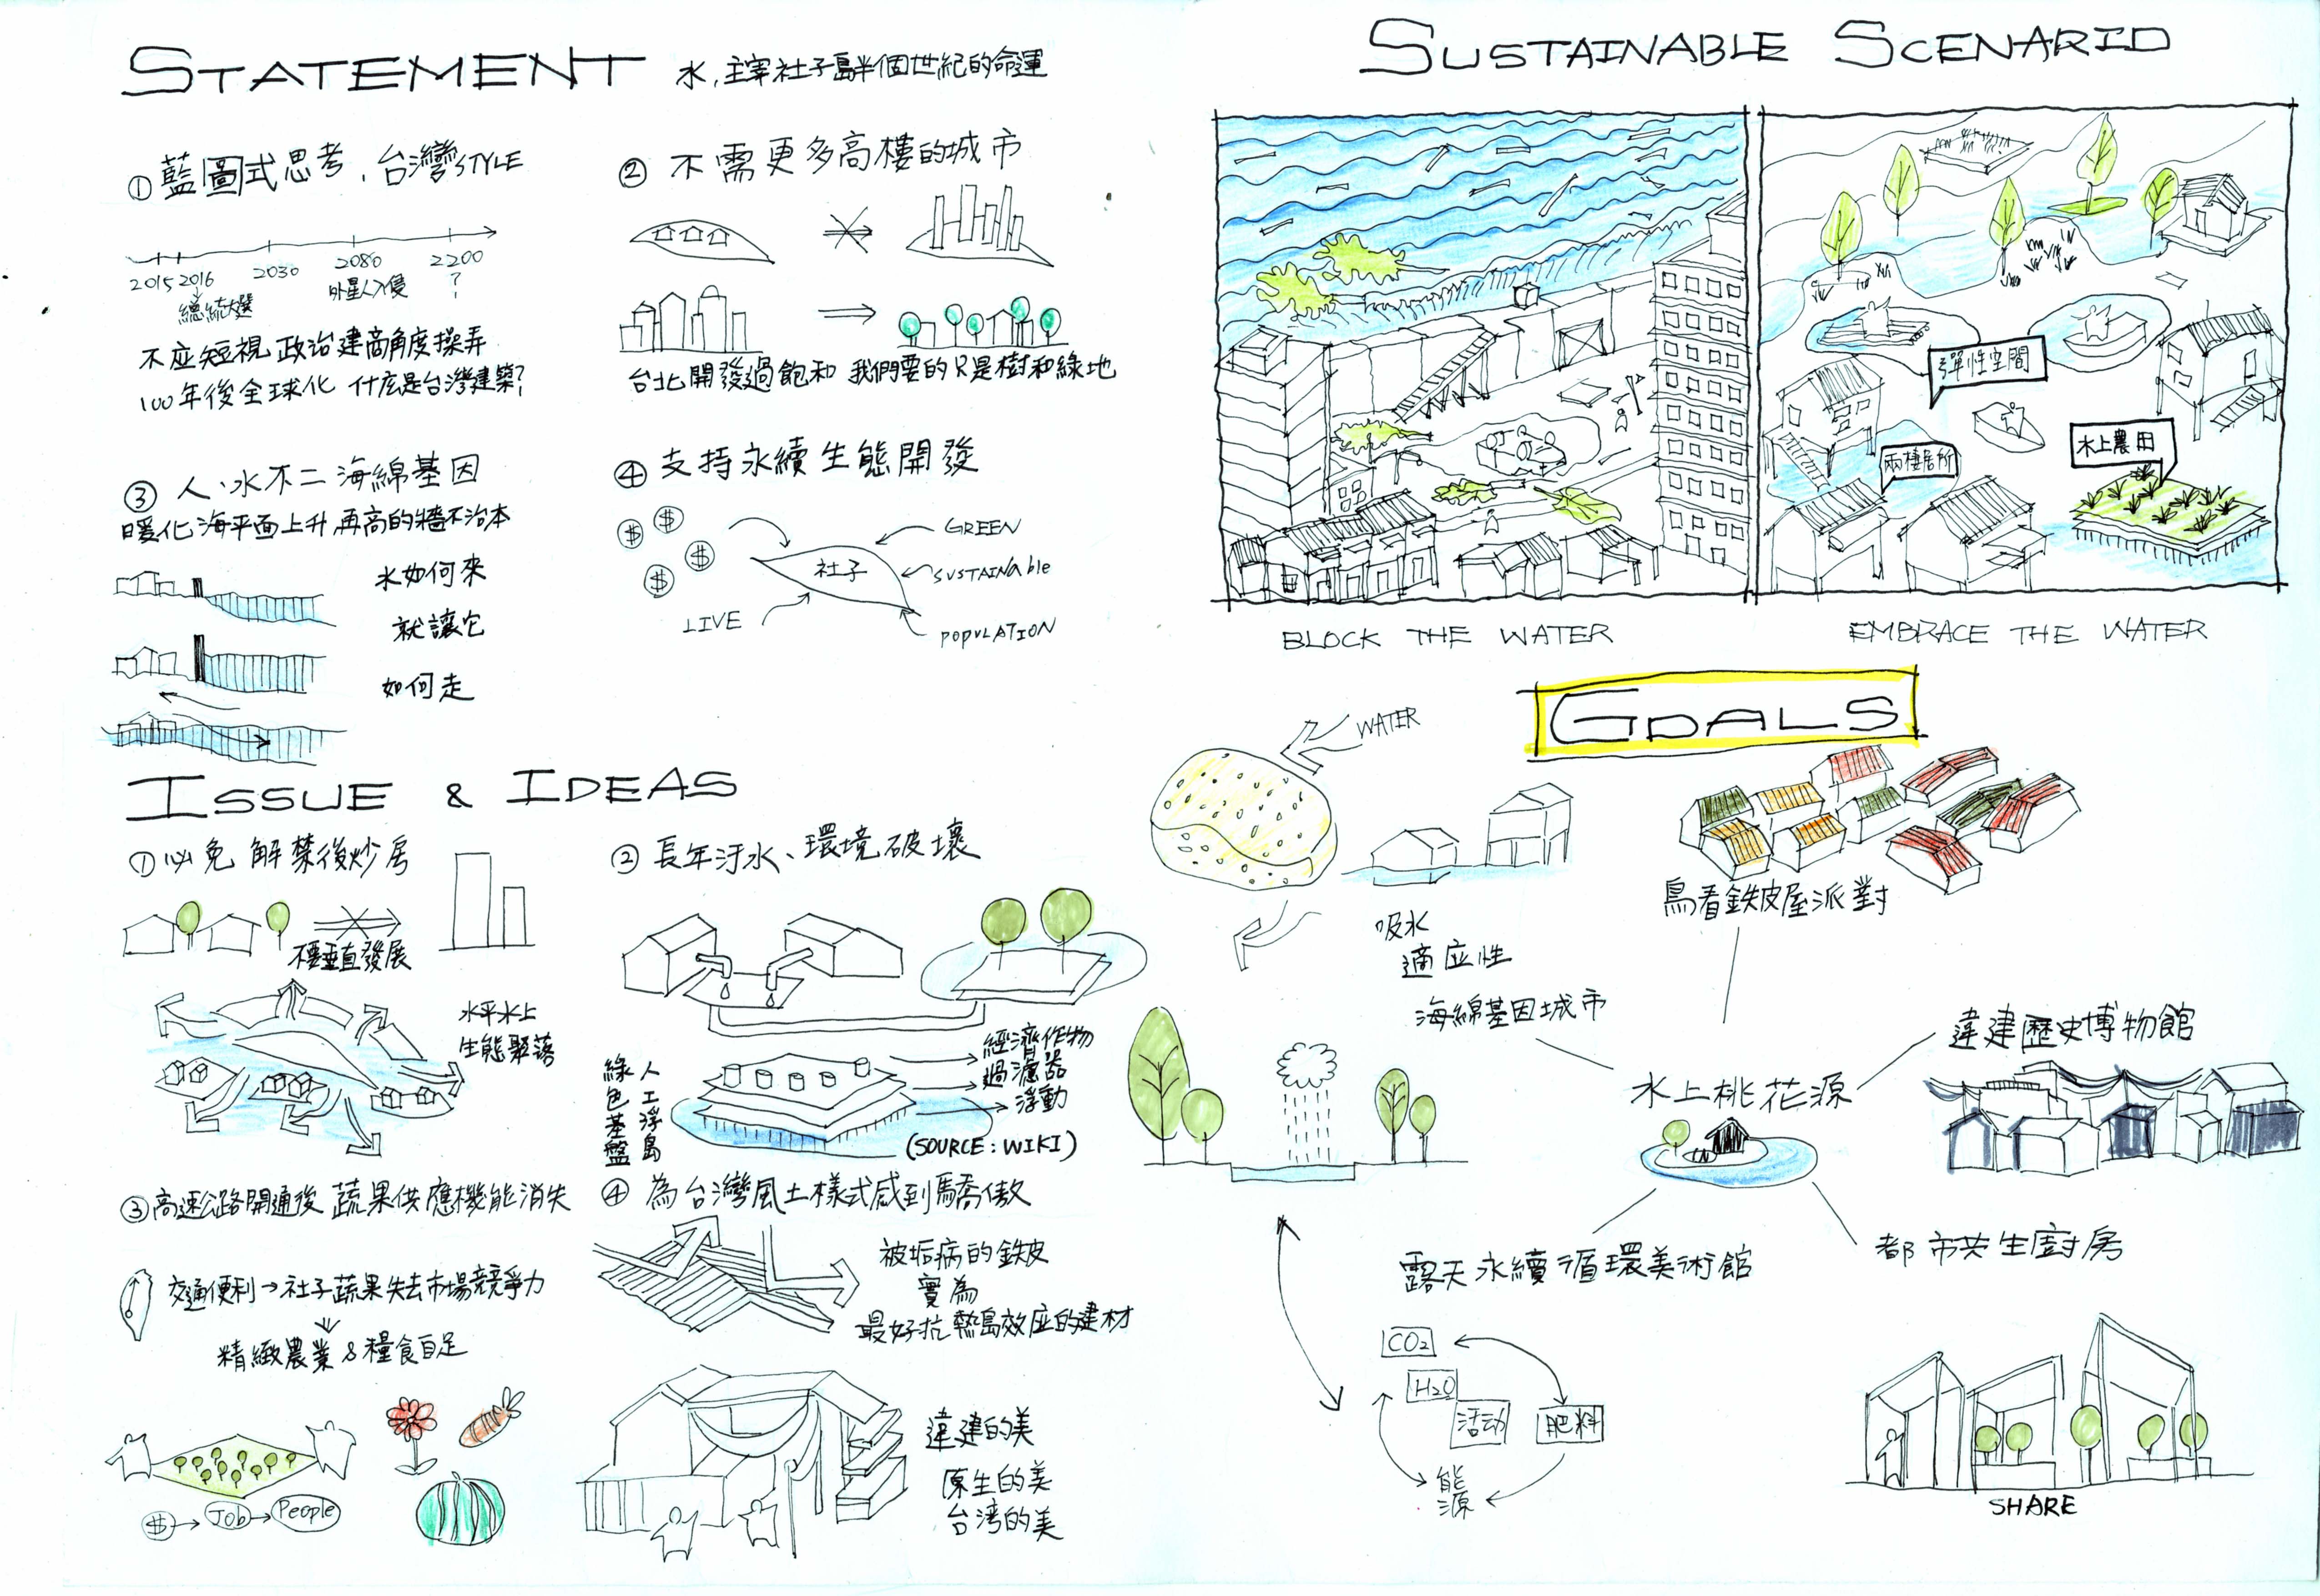 STATEMENT 水，主宰社子島半個世紀的命運
① 藍圖式思考，台灣STYLE
2015 2016 2030 2080 2200
總統大選 外星人入侵 ?
不应短視政治建商角度操弄
100年後全球化 什庅是台灣建築?
② 不需更多高樓的城市
台北開發過飽和 我們要的只是樹和綠地
③ 人、水不二 海綿基因
暖化海平面上升 再高的牆不治本
水如何來
就讓它
如何走
④ 支持永續生態開發
$ $ $ $
社子
GREEN
SUSTAINable
POPULATION
LIVE
ISSUE & IDEAS
① 必免 解禁後炒房
不要垂直發展
水平水上
生態聚落
② 長年汙水、環境破壞
綠色基盤
人工浮島
經濟作物
過濾器
浮動
(SOURCE: WIKI)
③ 高速公路開通後 蔬果供應機能消失
交通便利→社子蔬果失去市場競爭力
精緻農業&糧食自足
$→Job→People
④ 為台灣風土樣式感到驕傲
被垢病的鉄皮
實為
最好抗熱島效应的建材
違建的美
原生的美
台湾的美
SUSTAINABLE SCENARIO
彈性空間
兩棲居所
水上農田
BLOCK THE WATER
EMBRACE THE WATER
GOALS
WATER
吸水
適应性
海綿基因城市
鳥看鉄皮屋派對
水上桃花源
違建歷史博物館
露天永續循環美術館
都市共生廚房
CO2
H2O
活动
肥料
能源
SHARE